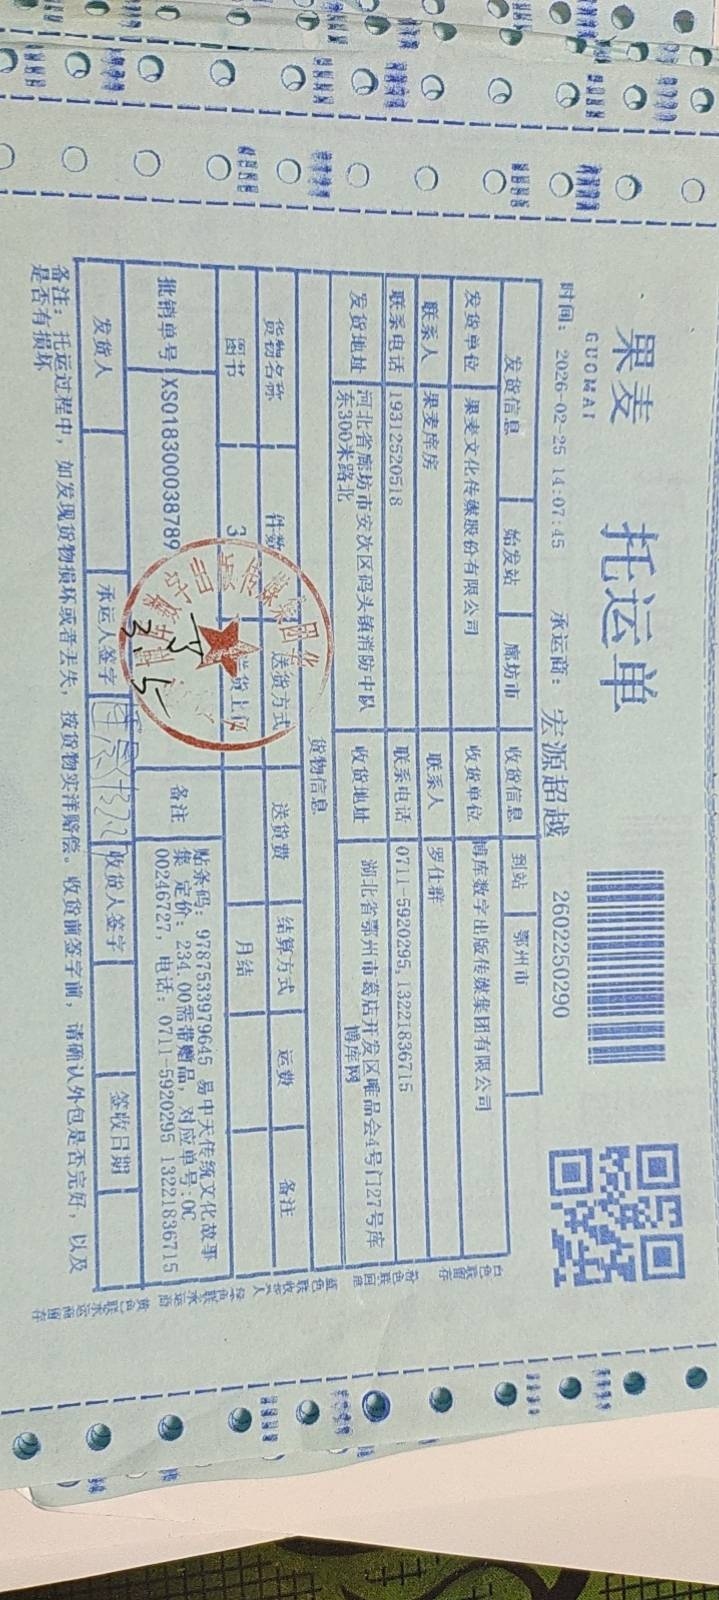 果麦
GUOMAI
托运单
时间：2026-02-25 14:07:45 承运商：宏源超越 2602250290
发货信息 始发站 廊坊市 收货信息 到站 鄂州市
发货单位 果麦文化传媒股份有限公司 收货单位 博库数字出版传媒集团有限公司
联系人 果麦库房 联系人 罗仕群
联系电话 19312520518 联系电话 0711-5920295,13221836715
发货地址 河北省廊坊市安次区码头镇消防中队
东300米路北
收货地址 湖北省鄂州市葛店开发区唯品会4号门27号库
博库网
货物信息
货物名称 件数 送货方式 送货费 结算方式 运费 备注
图书 3 送货上门 月结
批销单号 XS018300038789 备注 贴条码：9787533979645 易中天传统文化故事
集 定价：234.00需带赠品，对应单号:0C
00246727，电话：0711-5920295 13221836715
发货人 承运人签字 收货人签字 签收日期
备注：托运过程中，如发现货物损坏或者丢失，按货物实洋赔偿。收货前签字前，请确认外包是否完好，以及
是否有损坏
白色联留存
粉色联回息
蓝色联收货人
绿色联承运商
黄色联承运商留存
3.5